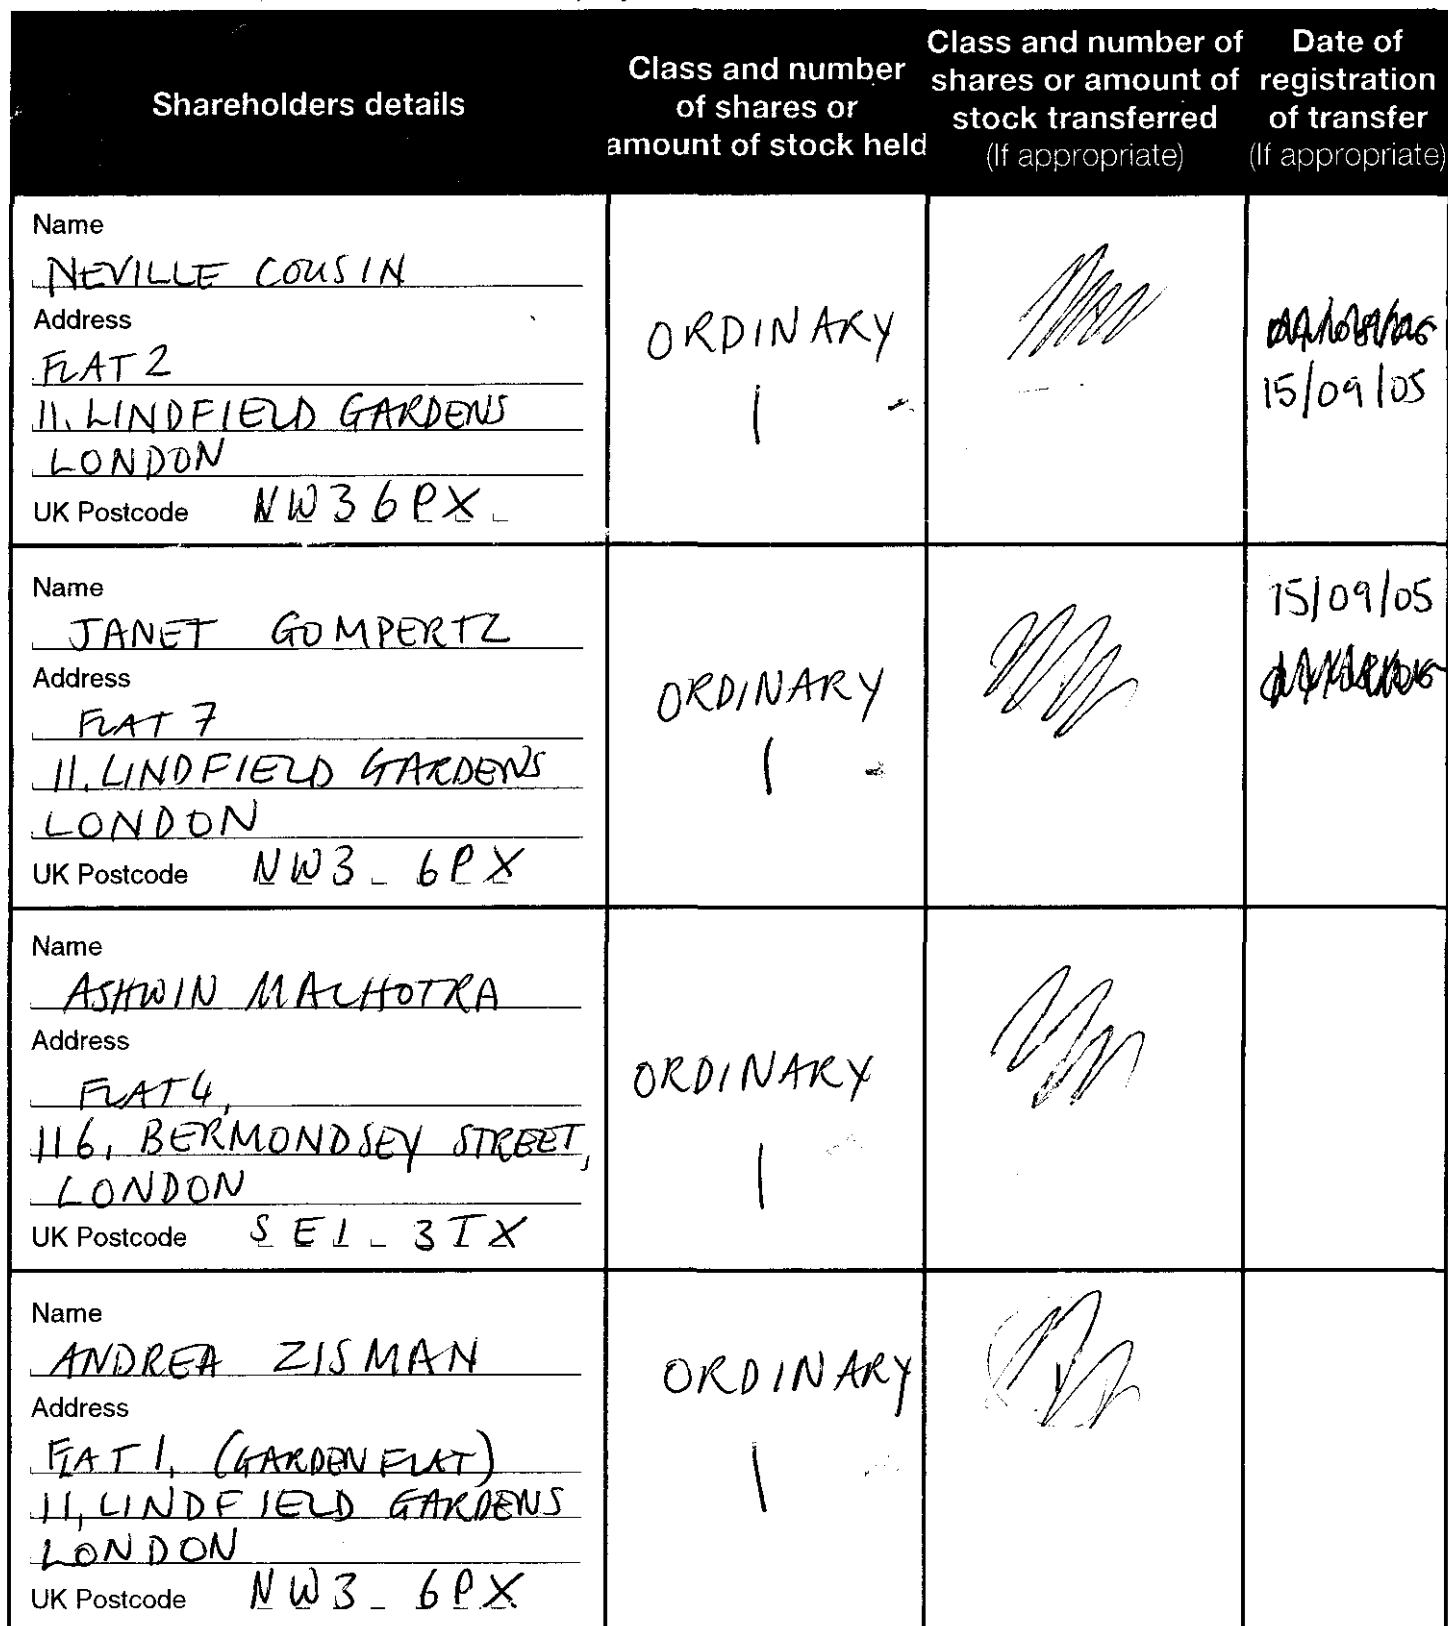 Shareholders details
Class and number
of shares or
amount of stock held
Class and number of
shares or amount of
stock transferred
(If appropriate)
Date of
registration
of transfer
(If appropriate)
Name
NEVILLE COUSIN
Address
FLAT 2
11, LINDFIELD GARDENS
LONDON
UK Postcode NW3 6PX
ORDINARY
1
15/09/05
Name
JANET GOMPERTZ
Address
FLAT 7
11, LINDFIELD GARDENS
LONDON
UK Postcode NW3 6PX
ORDINARY
1
15/09/05
Name
ASHWIN MALHOTRA
Address
FLAT 4,
116, BERMONDSEY STREET,
LONDON
UK Postcode SE1 3TX
ORDINARY
1
Name
ANDREA ZISMAN
Address
FLAT 1, (GARDEN FLAT)
11, LINDFIELD GARDENS
LONDON
UK Postcode NW3 6PX
ORDINARY
1